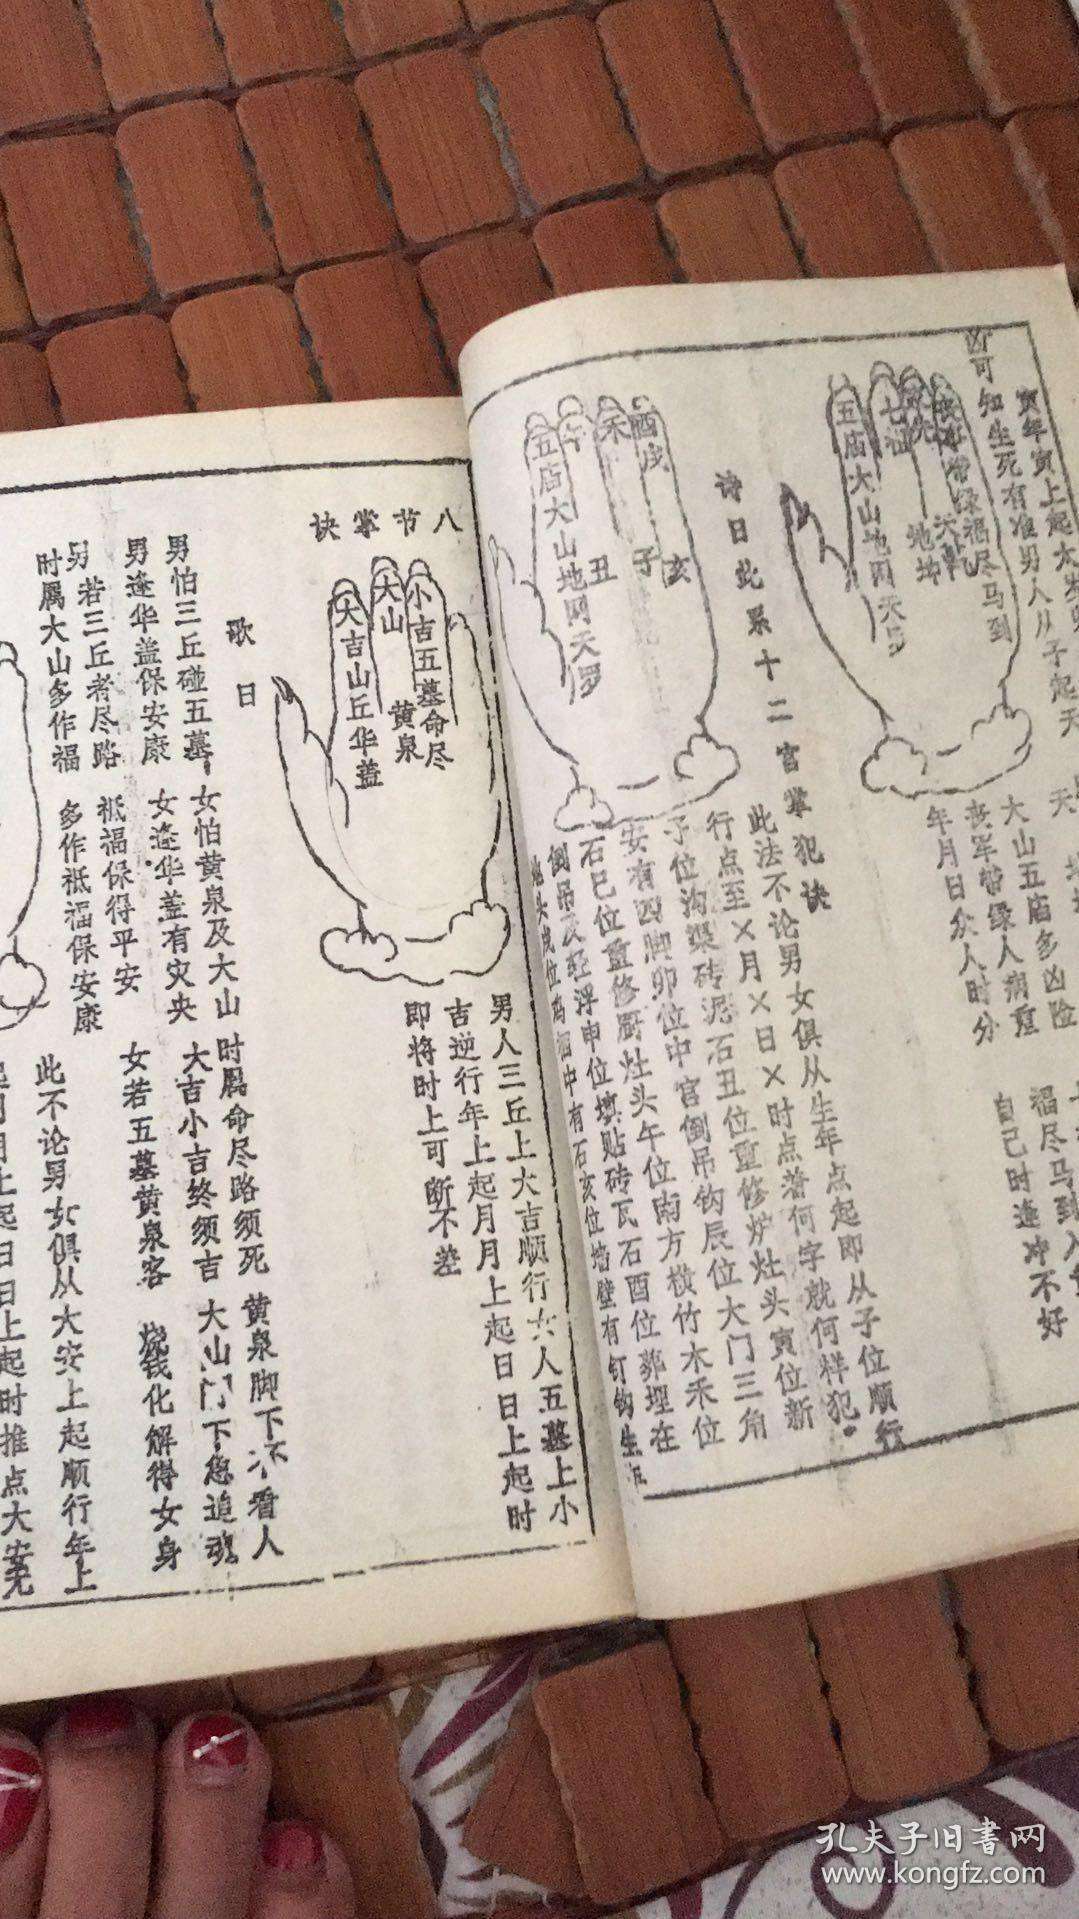 寅年寅上起太岁
凶可知生死有准男人从子起天
带绿福尽马到
七
五庙大山地网天罗
大山五庙多凶险
丧军带绿人病重
年月日众人时分
福尽马到入
自己时逢冲不好
诗曰此系十二宫掌犯诀
酉戌亥
禾子
午丑
五庙大山地网天罗
此法不论男女俱从生年点起即从子位顺行
行点至×月×日×时点着何字就何样犯。
子位沟渠砖泥石丑位重修炉灶头寅位新
安有四脚卯位中宫倒吊钩辰位大门三角
石巳位重修厨灶头午位南方横竹木禾位
倒吊及轻浮申位填贴砖瓦石酉位葬埋在
地头戌位鸡栖中有石亥位墙壁有钉钩生
八节掌诀
小吉五墓命尽
黄泉
大山
大吉山丘华盖
男人三丘上大吉顺行女人五墓上小
吉逆行年上起月月上起日日上起时
即将时上可断不差
歌曰
男怕三丘碰五墓 女怕黄泉及大山 时属命尽路须死 黄泉脚下不看人
男逢华盖保安康 女逢华盖有灾央 大吉小吉终须吉 大山门下急追魂
男若三丘者尽路 祗福保得平安 女若五墓黄泉客 烧钱化解得女身
时属大山多作福 多作祗福保安康
此不论男女俱从大安上起顺行年上
起月月上起日日上起时推点大安无
孔夫子旧书网
www.kongfz.com